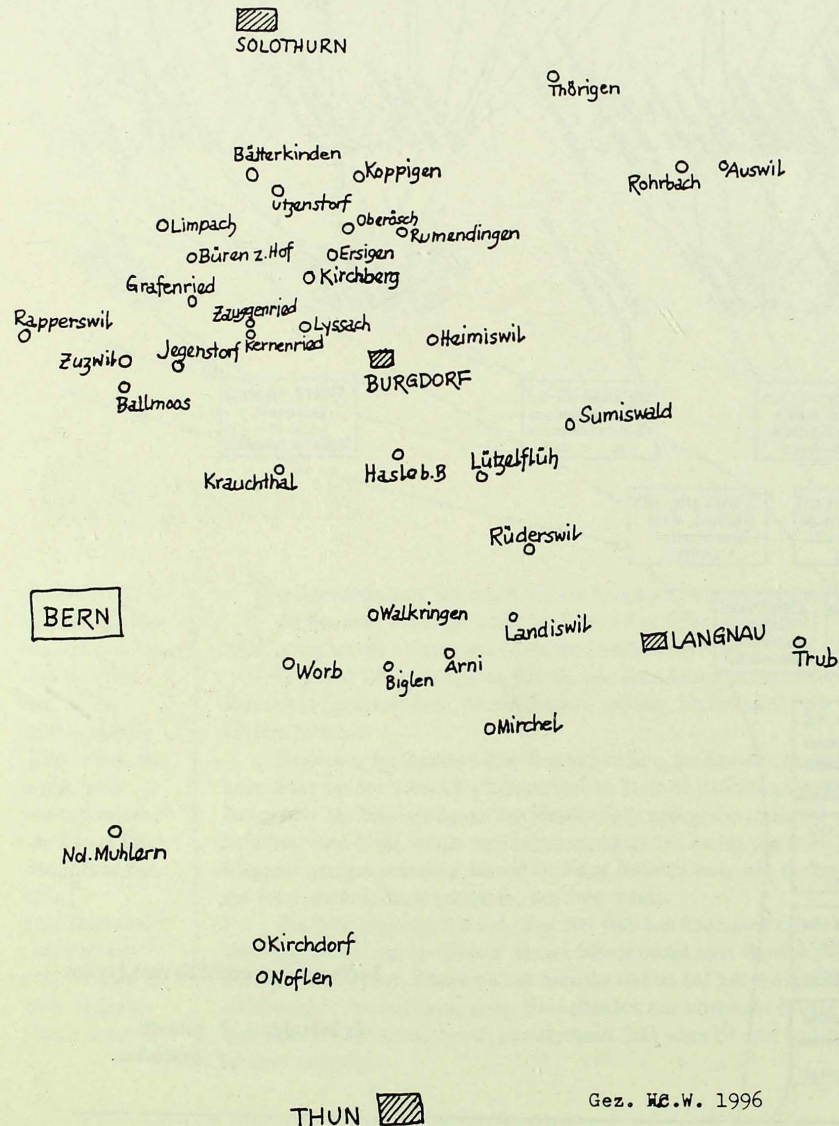 SOLOTHURN
Thörigen
Bätterkinden
Koppigen
Rohrbach
Auswil
Utzenstorf
Limpach
Oberösch
Rumendingen
Büren z.Hof
Ersigen
Kirchberg
Grafenried
Zauggenried
Rapperswil
Lyssach
Heimiswil
Kernenried
Zuzwil
Jegenstorf
BURGDORF
Ballmoos
Sumiswald
Hasle b.B
Lützelflüh
Krauchthal
Rüderswil
BERN
Walkringen
Landiswil
LANGNAU
Trub
Worb
Biglen
Arni
Mirchel
Nd.Muhlern
Kirchdorf
Noflen
Gez. W.1996
THUN